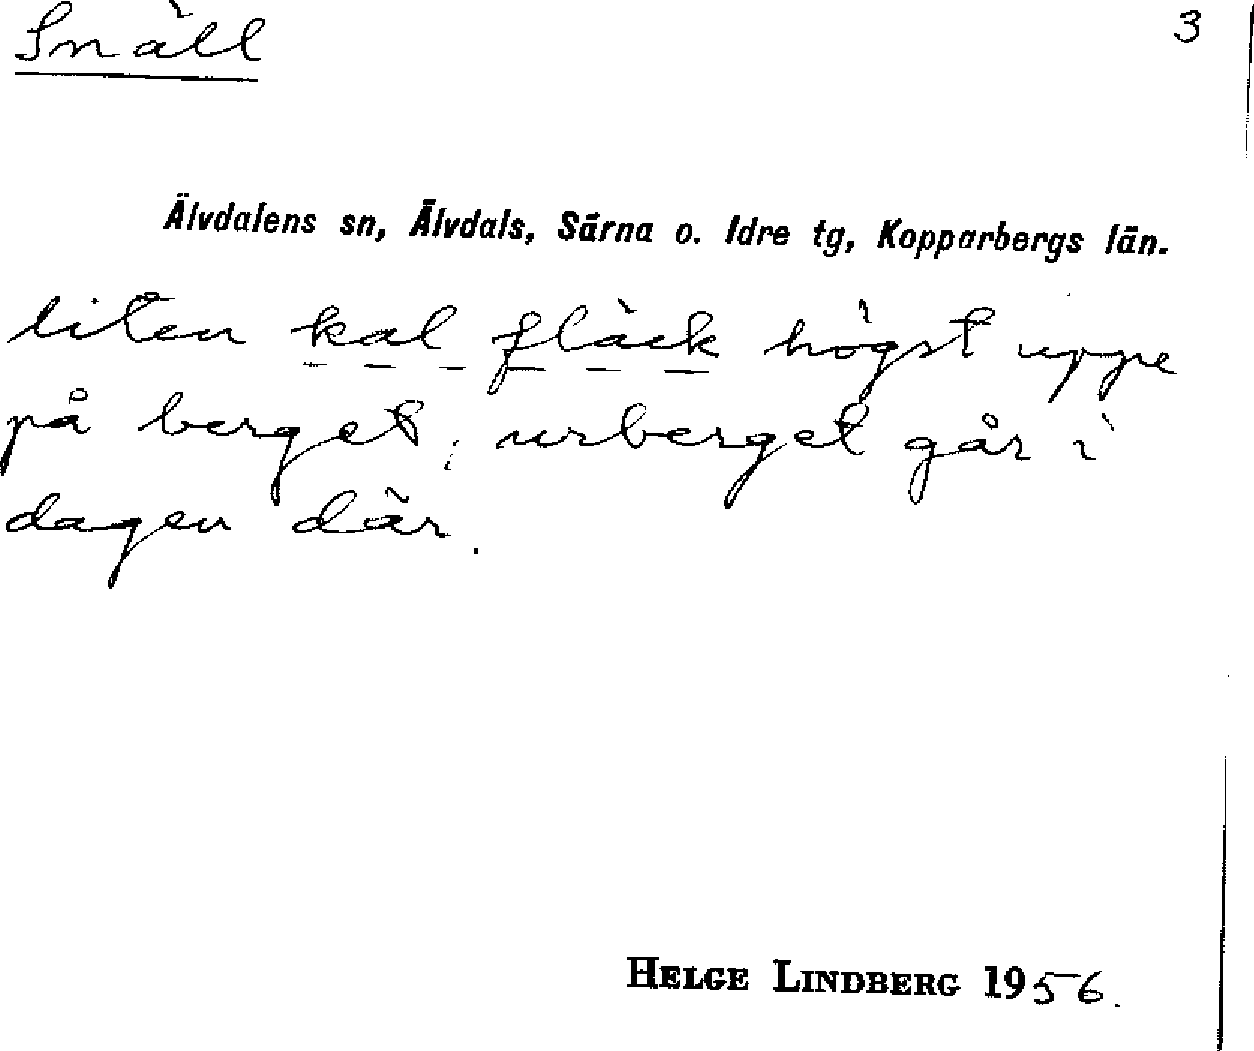 Snäll 3
Älvdalens sn, Älvdals, Särna o. Idre tg, Kopparbergs län.
liten kal fläck högst uppe
på berget; urberget går i
dagen där.
HELGE LINDBERG 1956.